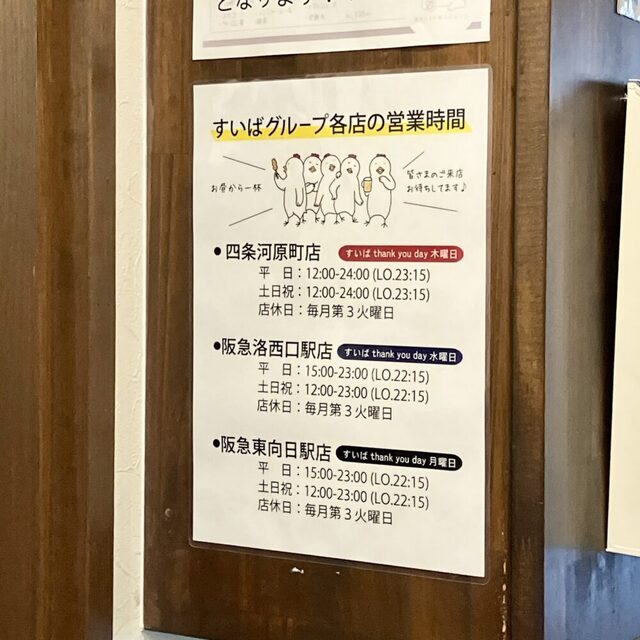 となります！
すいばグループ各店の営業時間
お昼から一杯
皆さまのご来店
お待ちしてます♪
●四条河原町店 すいば thank you day 木曜日
平　日：12:00-24:00 (LO.23:15)
土日祝：12:00-24:00 (LO.23:15)
店休日：毎月第３火曜日
●阪急洛西口駅店 すいば thank you day 水曜日
平　日：15:00-23:00 (LO.22:15)
土日祝：12:00-23:00 (LO.22:15)
店休日：毎月第３火曜日
●阪急東向日駅店 すいば thank you day 月曜日
平　日：15:00-23:00 (LO.22:15)
土日祝：12:00-23:00 (LO.22:15)
店休日：毎月第３火曜日